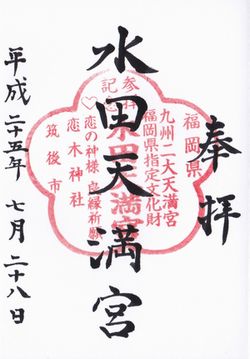 奉拝
福岡県
九州二大天満宮
福岡県指定文化財
水田天満宮
水田天満宮
参拝
記念
恋の神様 良縁祈願
恋木神社
筑後市
平成二十五年 七月二十八日